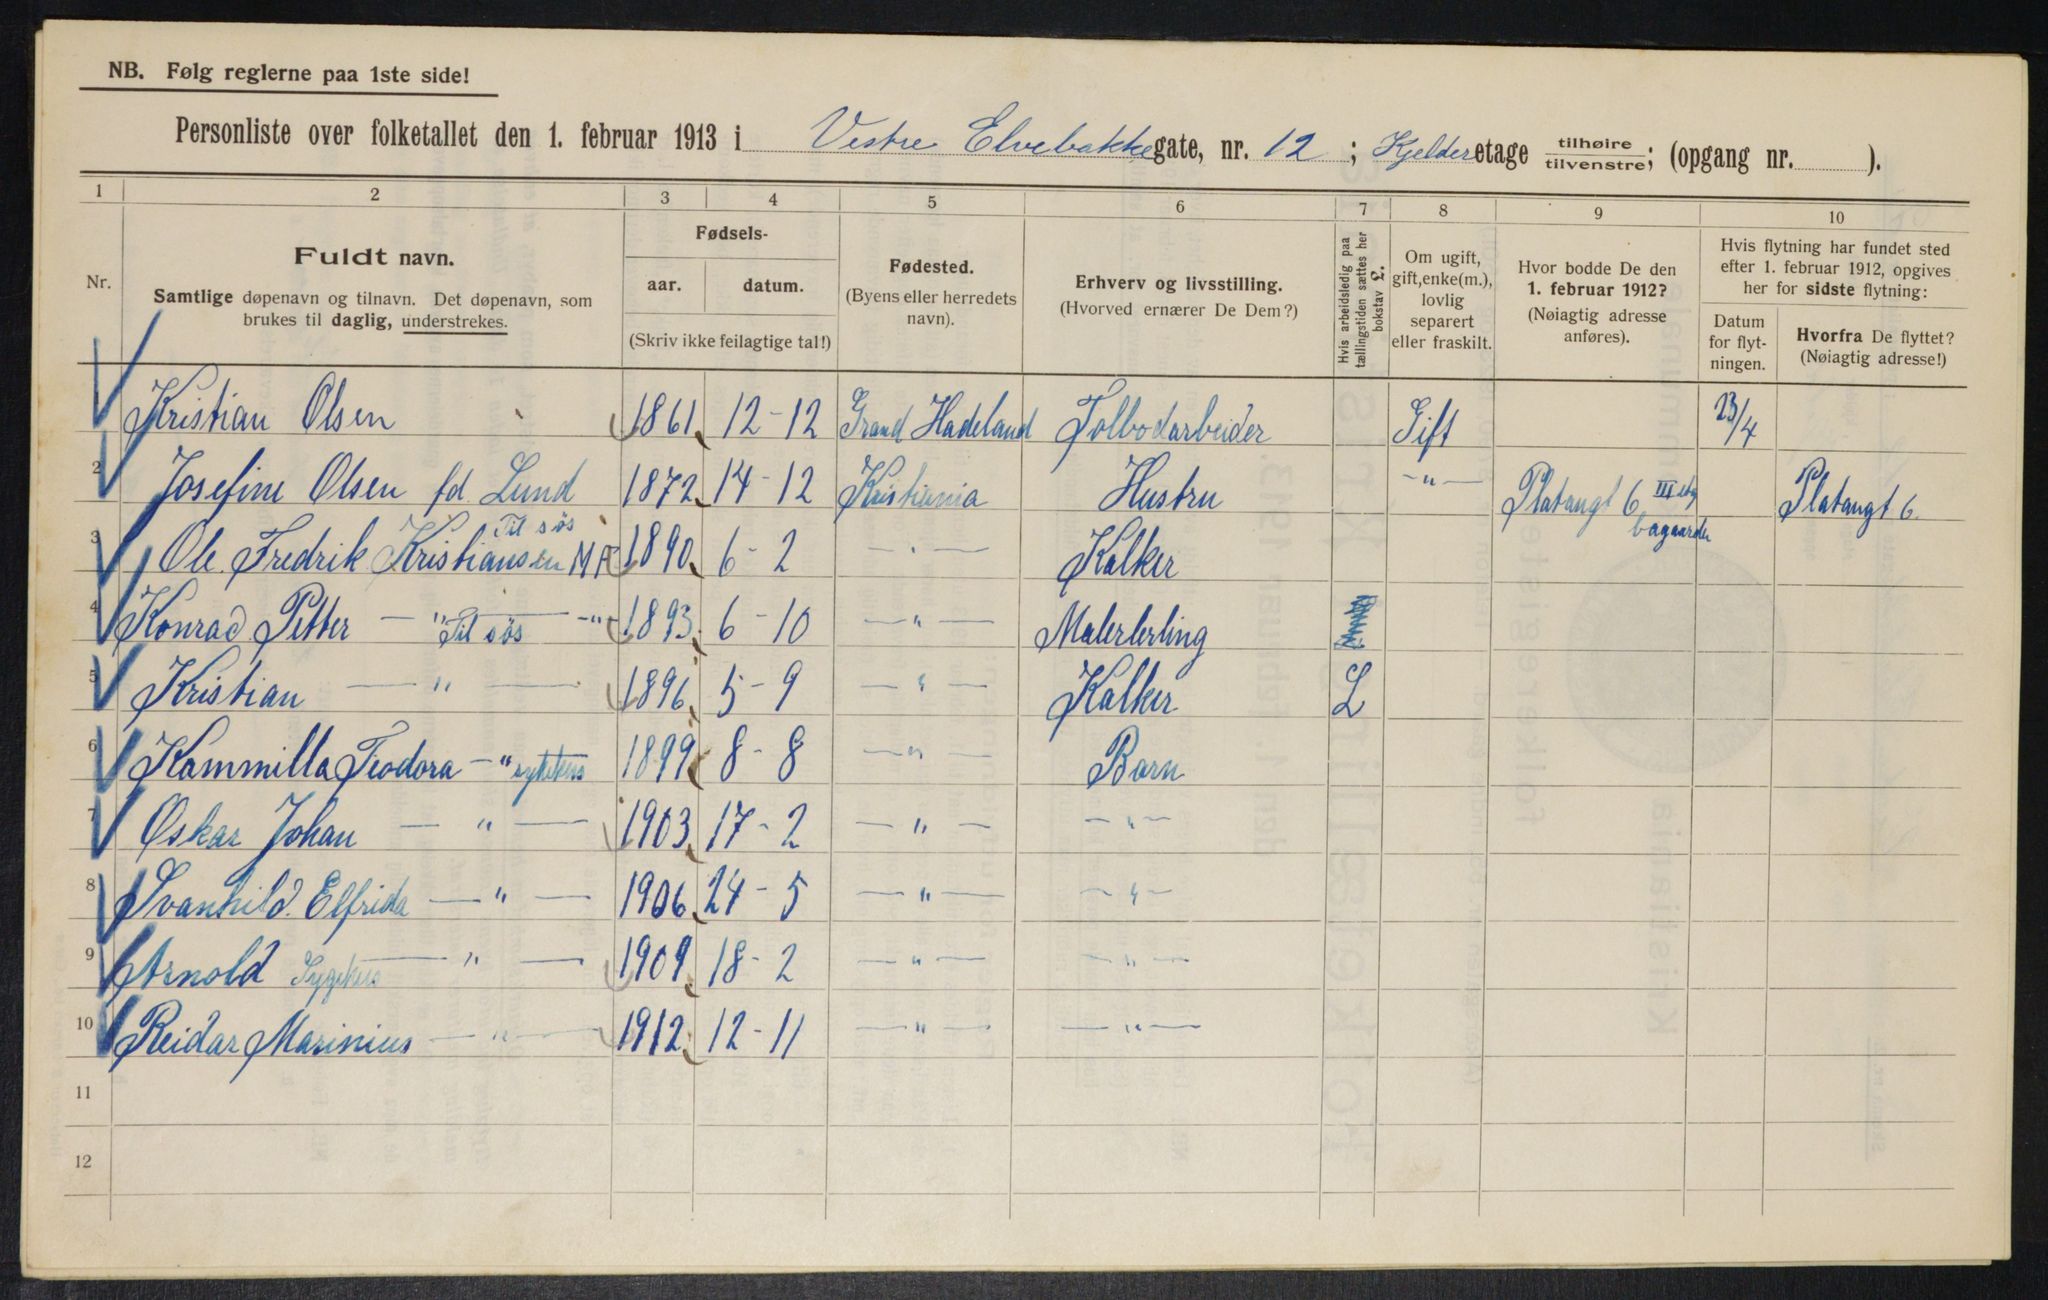 NB. Følg reglerne paa 1ste side!
Personliste over folketallet den 1. februar 1913 i Vestre Elvebakkegate, nr. 12; Kjelderetage tilhøire tilvenstre; (opgang nr. ).
1 2 3 4 5 6 7 8 9 10
Nr.
Fuldt navn.
Samtlige døpenavn og tilnavn. Det døpenavn, som
brukes til daglig, understrekes.
Fødsels-
aar. datum.
(Skriv ikke feilagtige tal!)
Fødested.
(Byens eller herredets
navn).
Erhverv og livsstilling.
(Hvorved ernærer De Dem?)
Hvis arbeidsledig paa
tællingstiden sættes her
bokstav L.
Om ugift,
gift, enke(m.),
lovlig
separert
eller fraskilt.
Hvor bodde De den
1. februar 1912?
(Nøiagtig adresse
anføres).
Hvis flytning har fundet sted
efter 1. februar 1912, opgives
her for sidste flytning:
Datum
for flyt-
ningen.
Hvorfra De flyttet?
(Nøiagtig adresse!)
Kristian Olsen 1861 12-12 Grand Hadeland Tolbodarbeider Gift 23/4
2 Josefine Olsen fd. Lund 1872 14-12 Kristiania Hustru -"- Platangt 6 III etg bagaarden Platangt 6.
Til søs
3 Ole Fredrik Kristiansen 1890 6-2 -"- Kalker
4 Konrad Petter -"- Til søs -"- 1893 6-10 -"- Malerlerling
5 Kristian -"- 1896 5-9 -"- Kalker L
6 Kammilla Teodora -"- sykehus 1899 8-8 -"- Barn
7 Oskar Johan -"- 1903 17-2 -"- -"-
8 Svanhild Elfrida -"- 1906 24-5 -"- -"-
9 Arnold Sygehus -"- 1909 18-2 -"- -"-
10 Reidar Marinius -"- 1912 12-11 -"- -"-
11
12